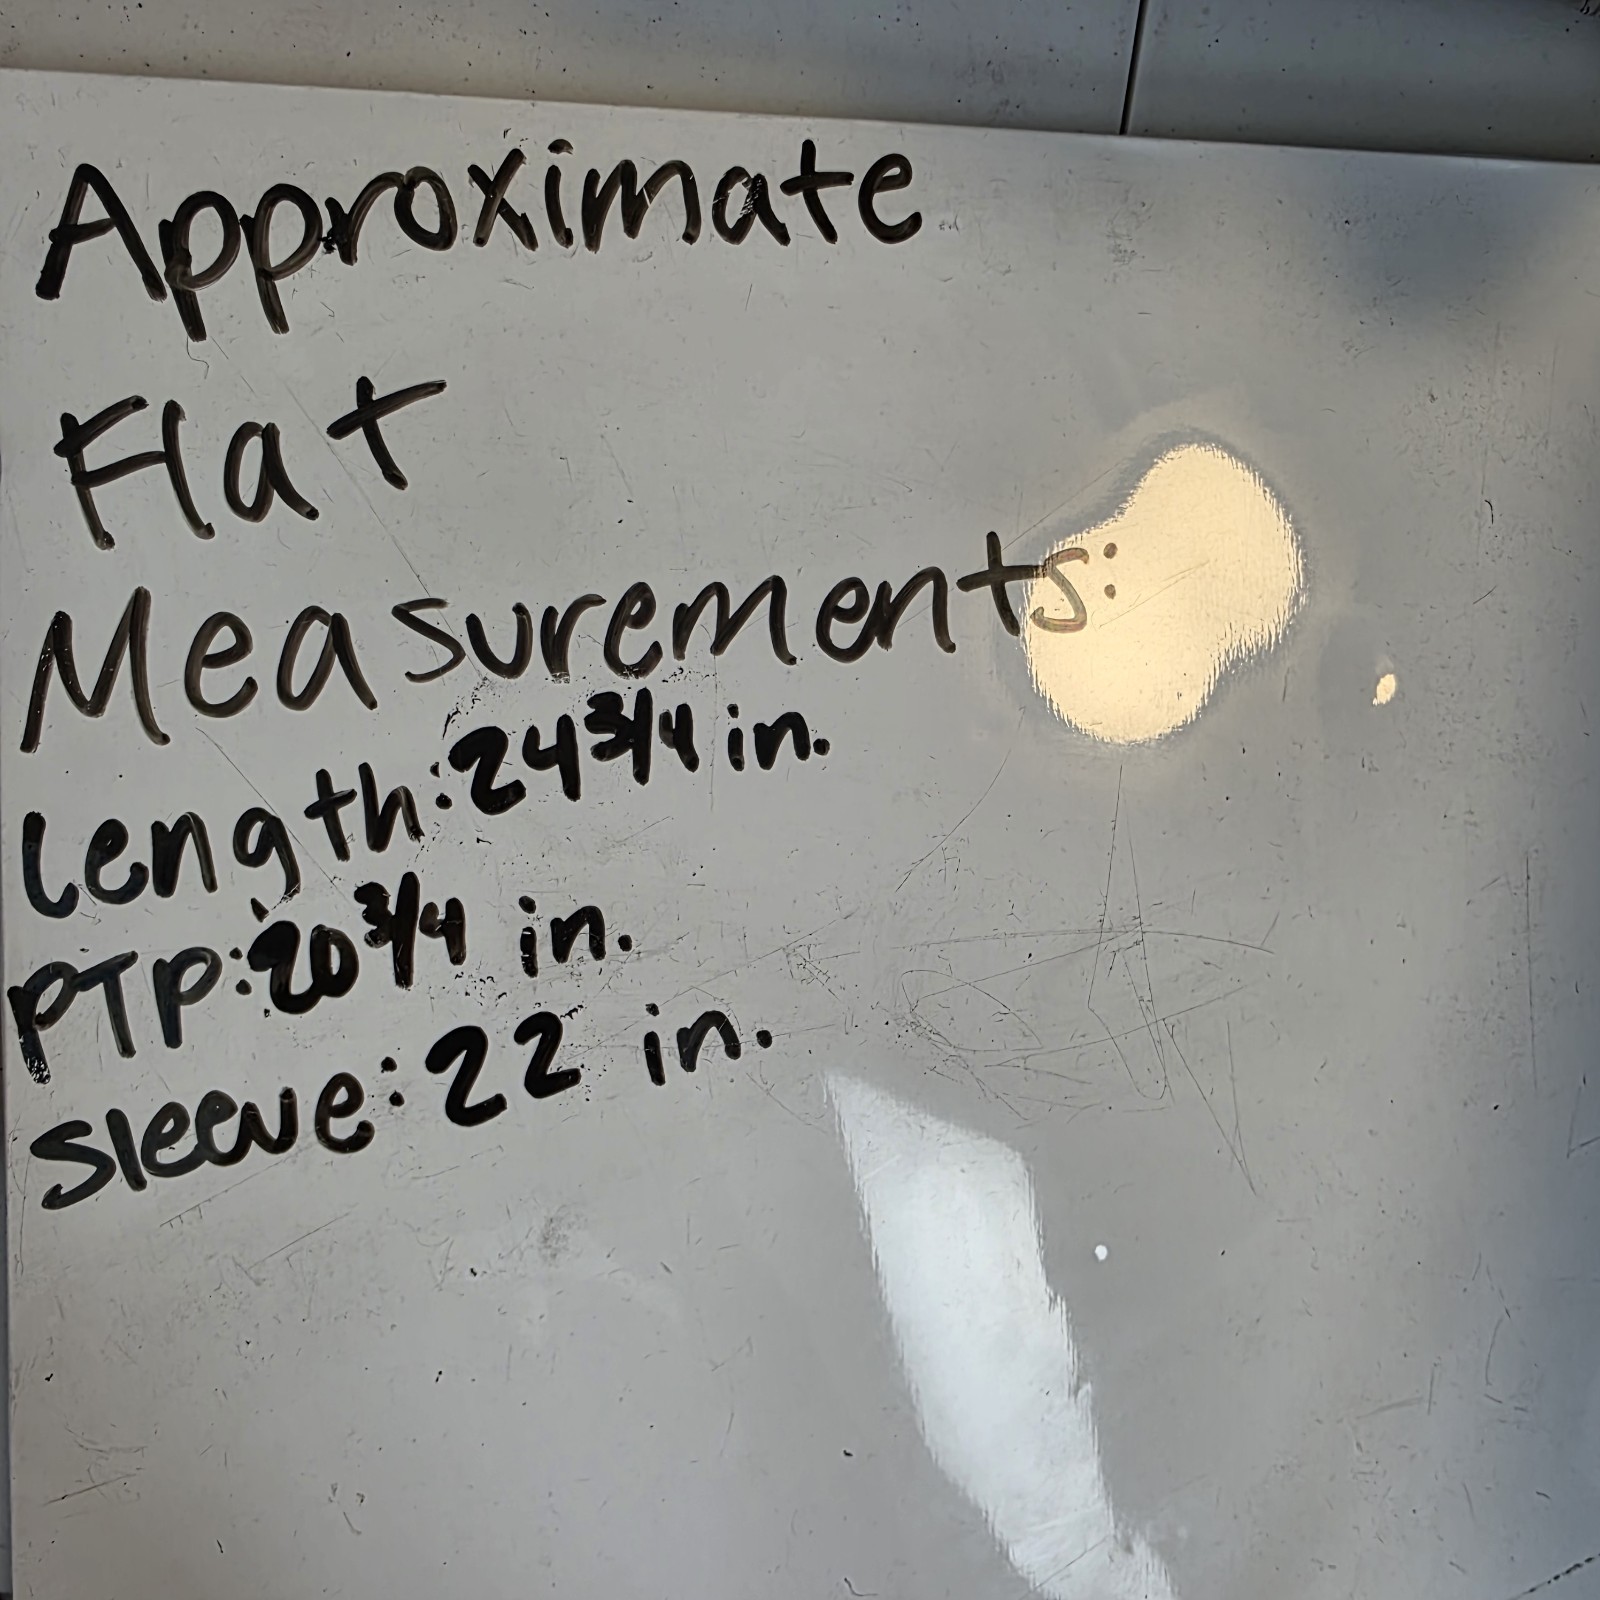 Approximate
Flat
Measurements:
Length: 24 3/4 in.
PTP: 20 3/4 in.
Sleeve: 22 in.